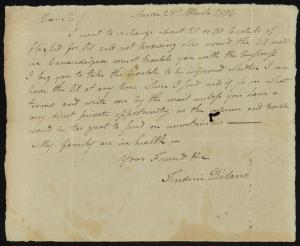 Aurora 23d March 1806
Dear Sir
I want to exchange about 25 or 30 bushels of
flaxseed for Oil and not knowing who owned the Oil mill
in Canandaigua must trouble you with the business
I beg you to take the trouble to be informed whether I can
have the Oil at any time when I send and if so on what
terms and write me by the mail unless you have a
very direct private opportunity, as the expence and trouble
would be too great to send on uncertainties
My family are in health
Your Friend &c
Frederic Delano